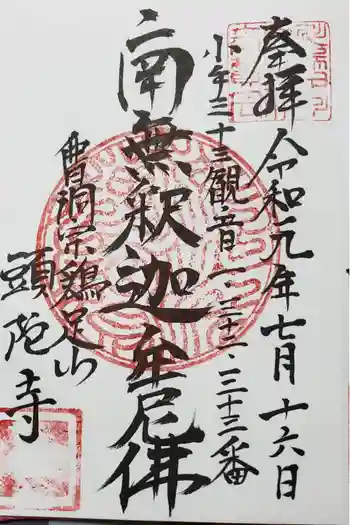 奉拝
令和元年七月十六日
三十三観音一、三十二、三十三番
南無釈迦牟尼佛
曹洞宗鶏足山
頭陀寺